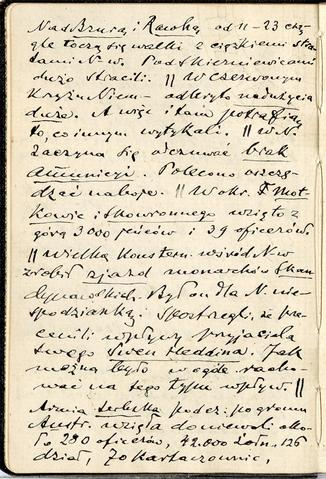 Nad Bzurą i Rawką od 11–23 cią-
gle toczą się walki z ciężkiemi stra-
tami N-w. Pod Skierniewicami
dużo stracili. || W czerwonym
krzyżu Niem– odkryto nadużycia
duże. A więc i tam potrafią
to, co innym wytykali. || W N.
zaczyna się odczuwać brak
amunicyi. Polecono oszczę-
dzać naboje. || W okr.
kowic i Skowronnego wzięto z
górą 3000 jeńców i 39 oficerów.
|| Wielką konstern. wśród N-w
zrobił zjazd monarchów Skan-
dynawskich. Był on dla N. nie-
spodzianką. Spostrzegli, że prze-
cenili wpływy przyjaciela
swego Swen Heddina. Jak
można było w ogóle racho-
wać na tego typu wpływ. ||
Armia serbska podcz. pogromu
Austr. wzięła doniewoli oko-
ło 290 oficerów, 42.000 żołn., 126
dział, 70 kartaczownic,